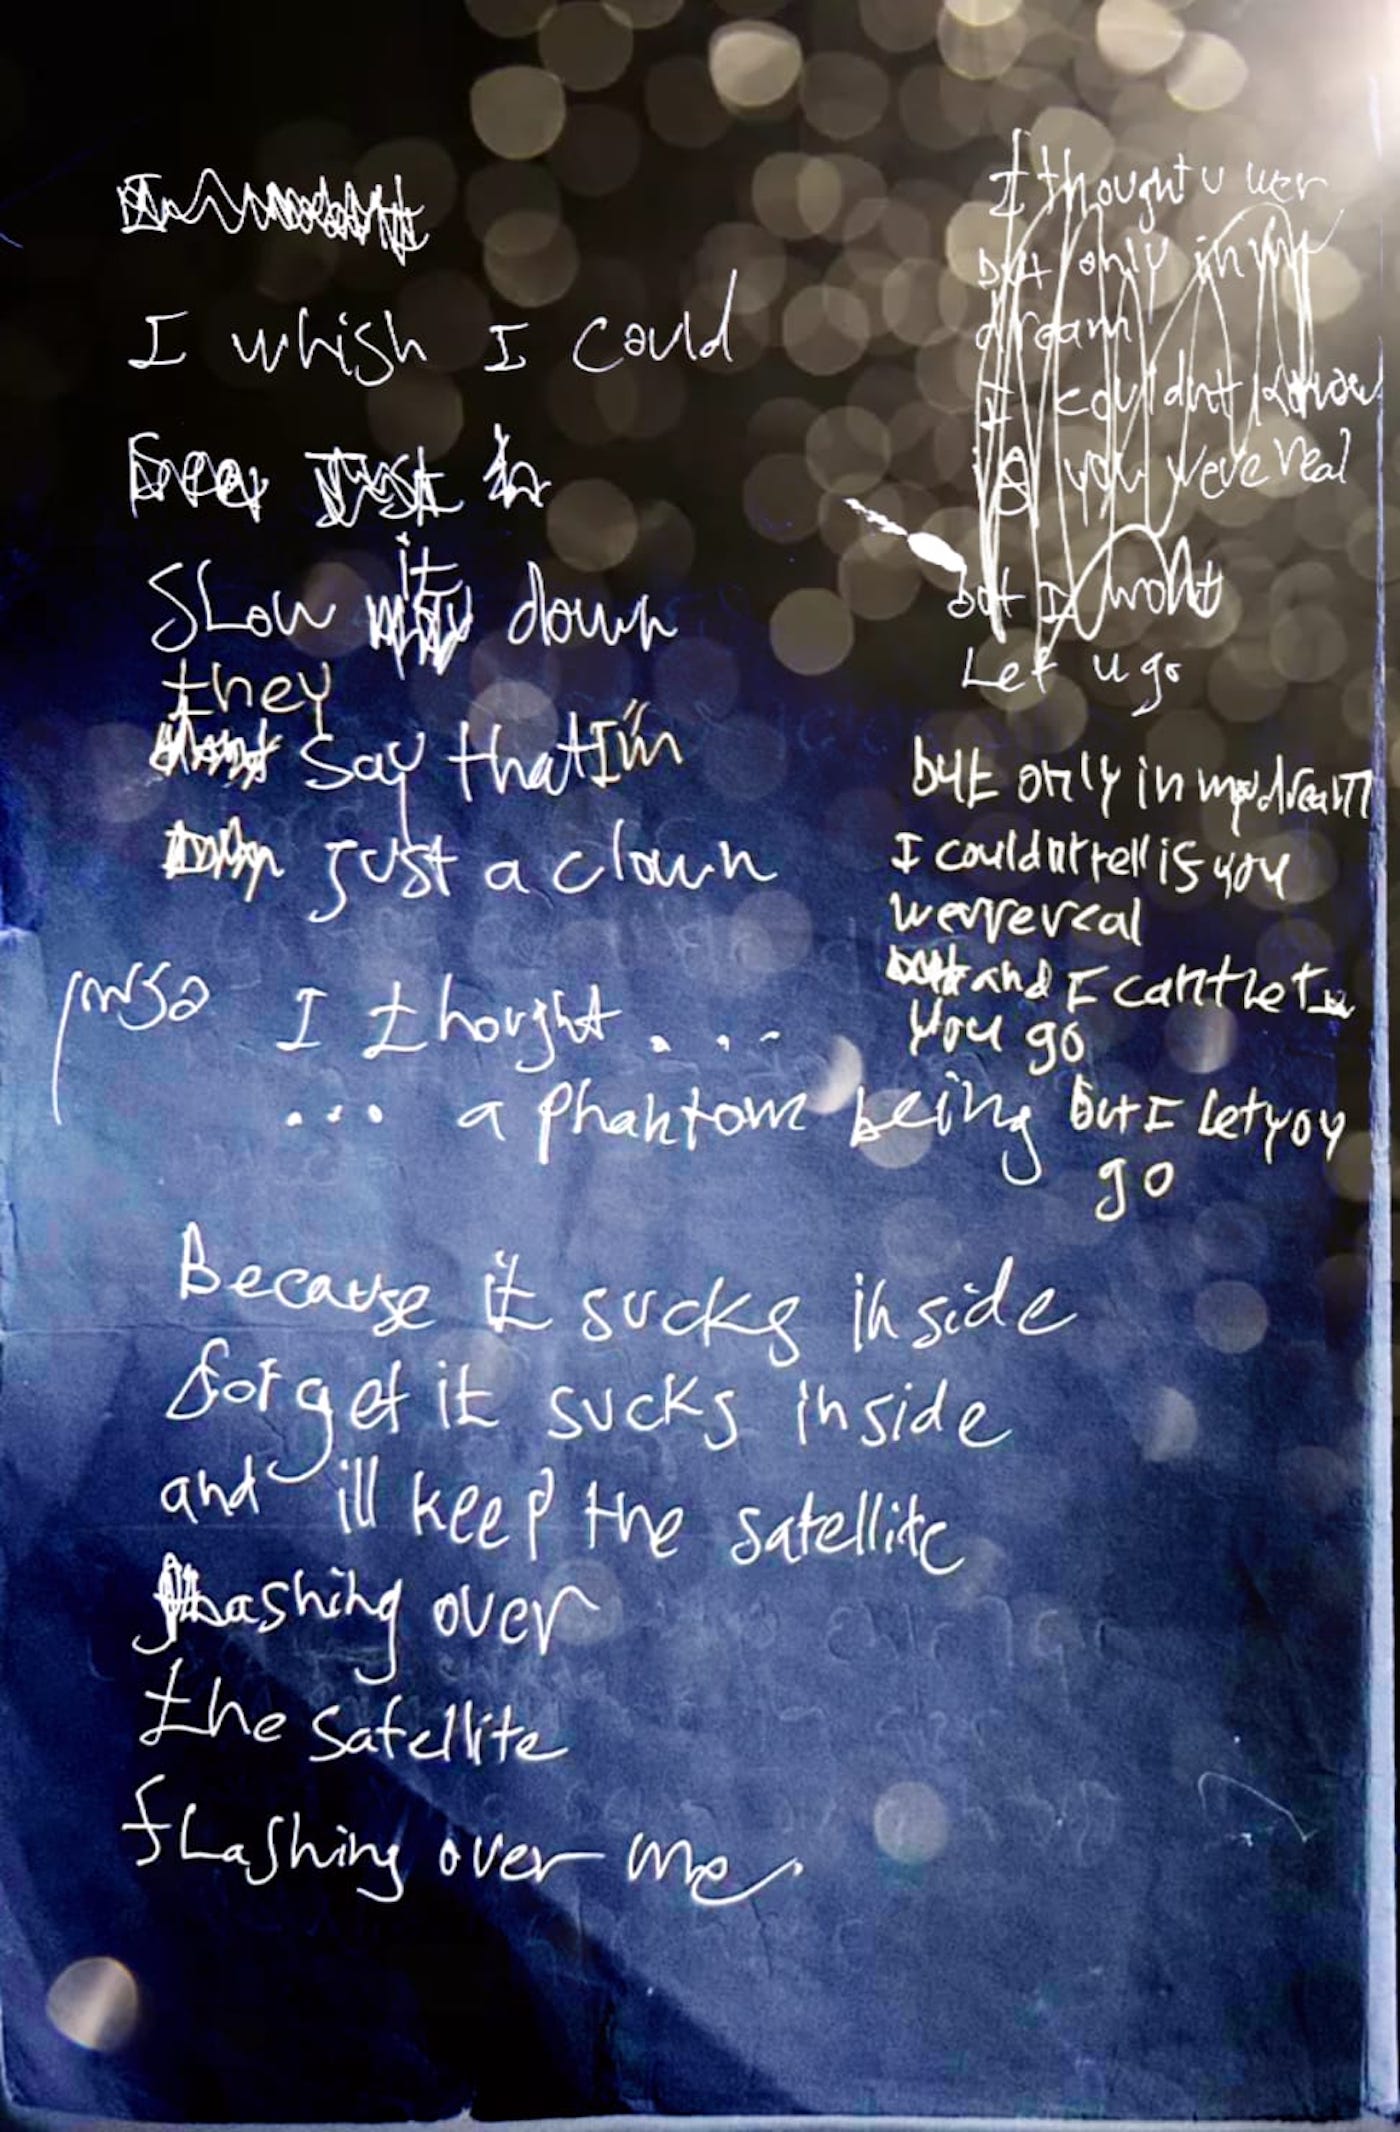 I whish I could
Slow it down
they
say that I'm
just a clown
I thought...
... a phantom being
Because it sucks inside
forget it sucks inside
and ill keep the satellite
ashing over
the satellite
flashing over me.
I thought u wer
but only in my
dream
I couldnt know
you were real
but I wont
Let u go
but only in my dream
I couldnt tell is you
were real
and I cant let
you go
but I let you
go